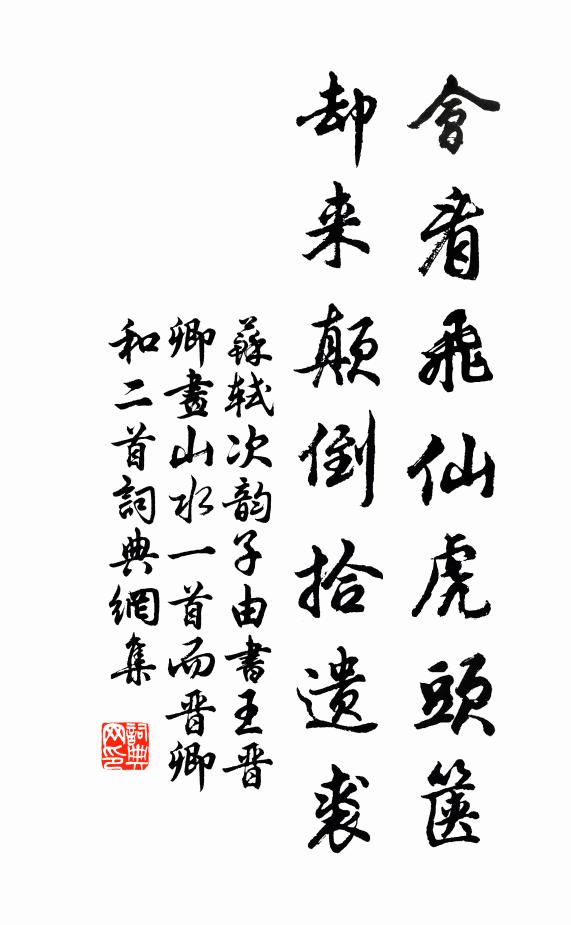 會看飛仙虎頭篋
却来顛倒拾遺裘
蘇軾次韵子由書王晋
卿畫山水一首而晋卿
和二首詞典網集
詞典
网印